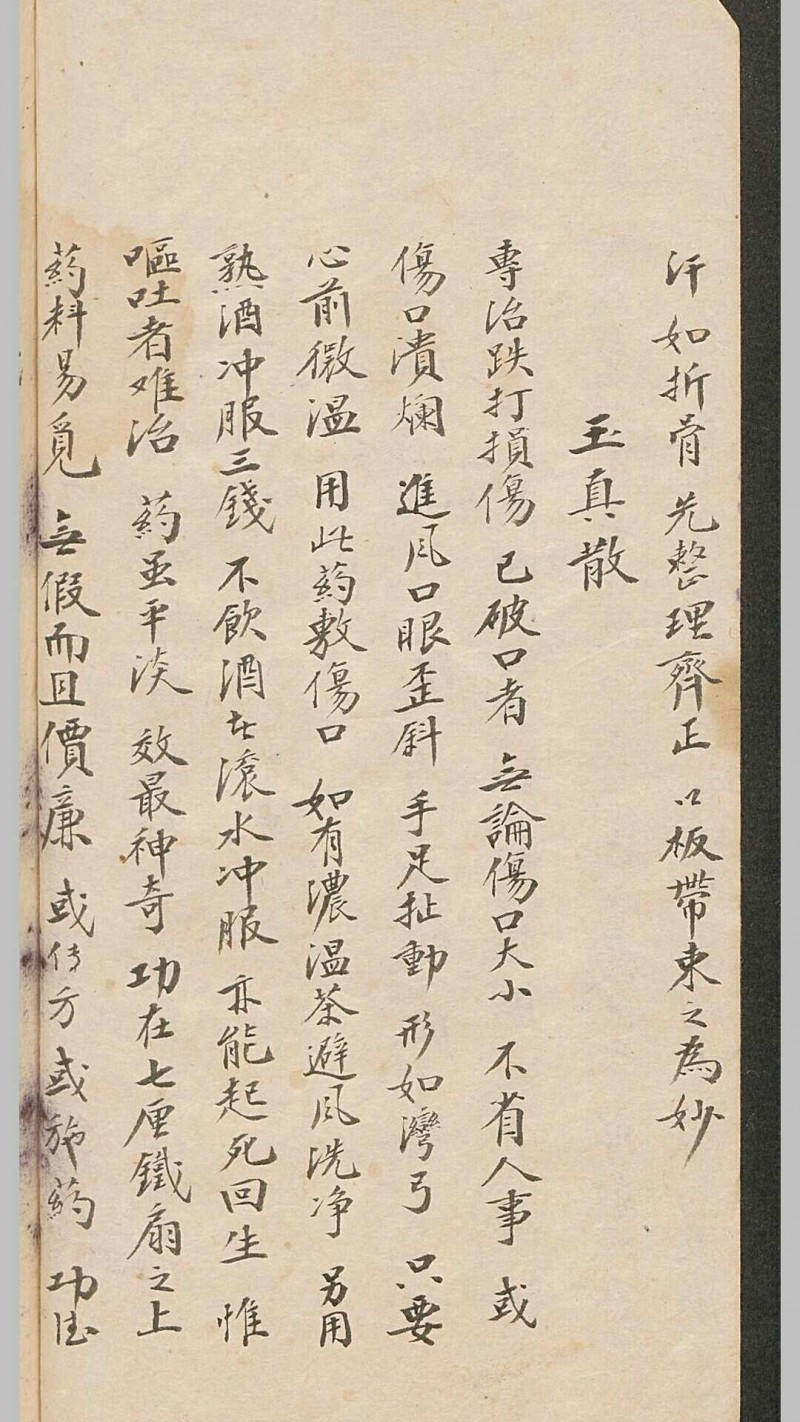 汗如折骨先整理齊正以板帶束之為妙
玉真散
專治跌打損傷已破口者無論傷口大小不省人事或
傷口潰爛進风口眼歪斜手足扯動形如灣弓只要
心前微溫用此葯敷傷口如有濃溫茶避风洗净另用
熟酒冲服三錢不飲酒者滾水冲服亦能起死回生惟
嘔吐者难治葯虽平淡效最神奇功在七厘鐵扇之上
葯料易覓無假而且價廉或传方或施葯功德